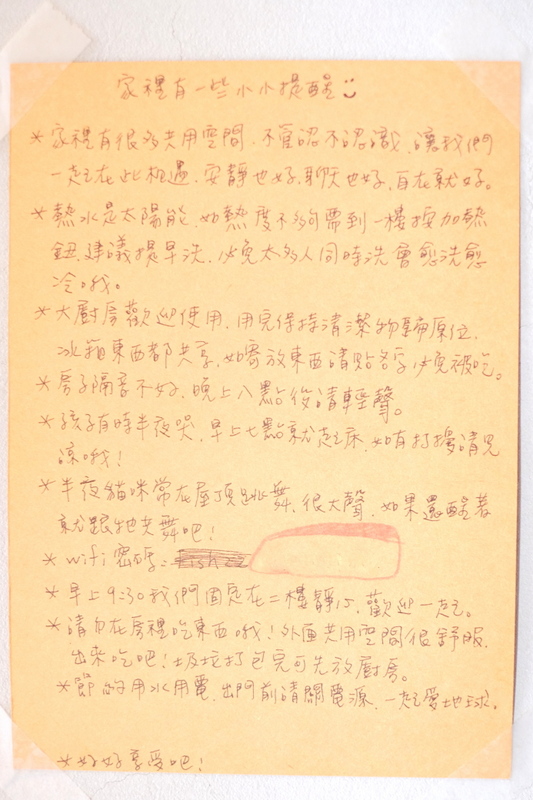 家裡有一些小小提醒
* 家裡有很多共用空間，不管認不認識，讓我們
一起在此相遇，安靜也好，聊天也好，自在就好。
* 熱水是太陽能，如熱度不夠需到一樓按加熱
鈕，建議提早洗，以免太多人同時洗會愈洗愈
冷哦。
* 大廚房歡迎使用，用完保持清潔物歸原位，
冰箱東西都共享，如寄放東西請貼名字以免被吃。
* 房子隔音不好，晚上八點後請輕聲。
* 孩子有時半夜哭，早上七點就起床，如有打擾請見
諒哦！
* 半夜貓咪常在屋頂跳舞，很大聲，如果還醒著
就跟牠共舞吧！
* wifi密碼：
* 早上9:30我們固定在二樓靜心，歡迎一起。
* 請勿在房裡吃東西哦！外面共用空間很舒服，
出來吃吧！垃圾打包完可先放廚房。
* 節約用水用電，出門前請關電源，一起愛地球。
* 好好享受吧！